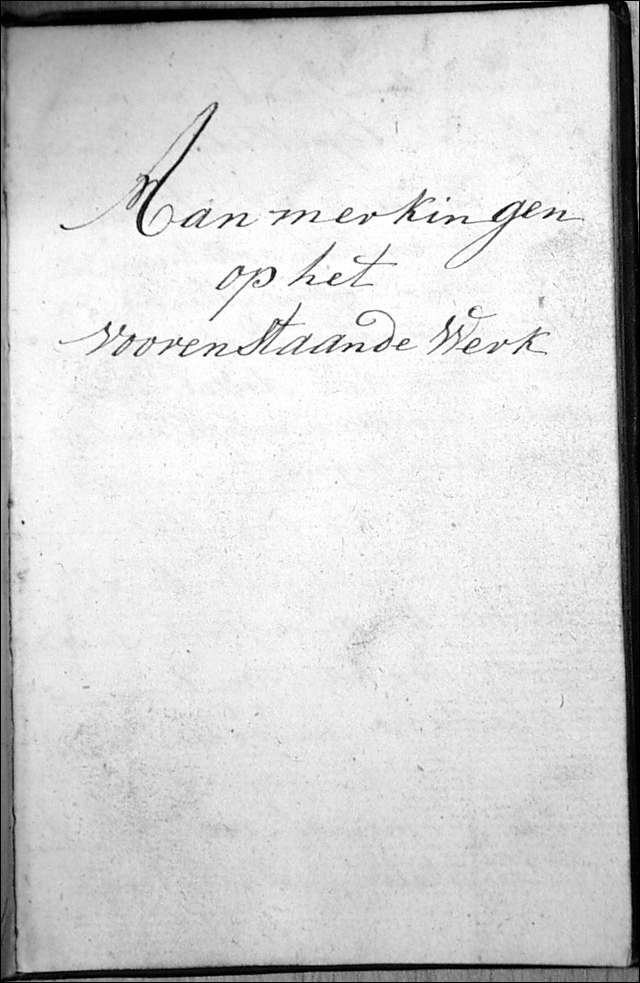 Aanmerkingen
op het
voorenstaande Werk